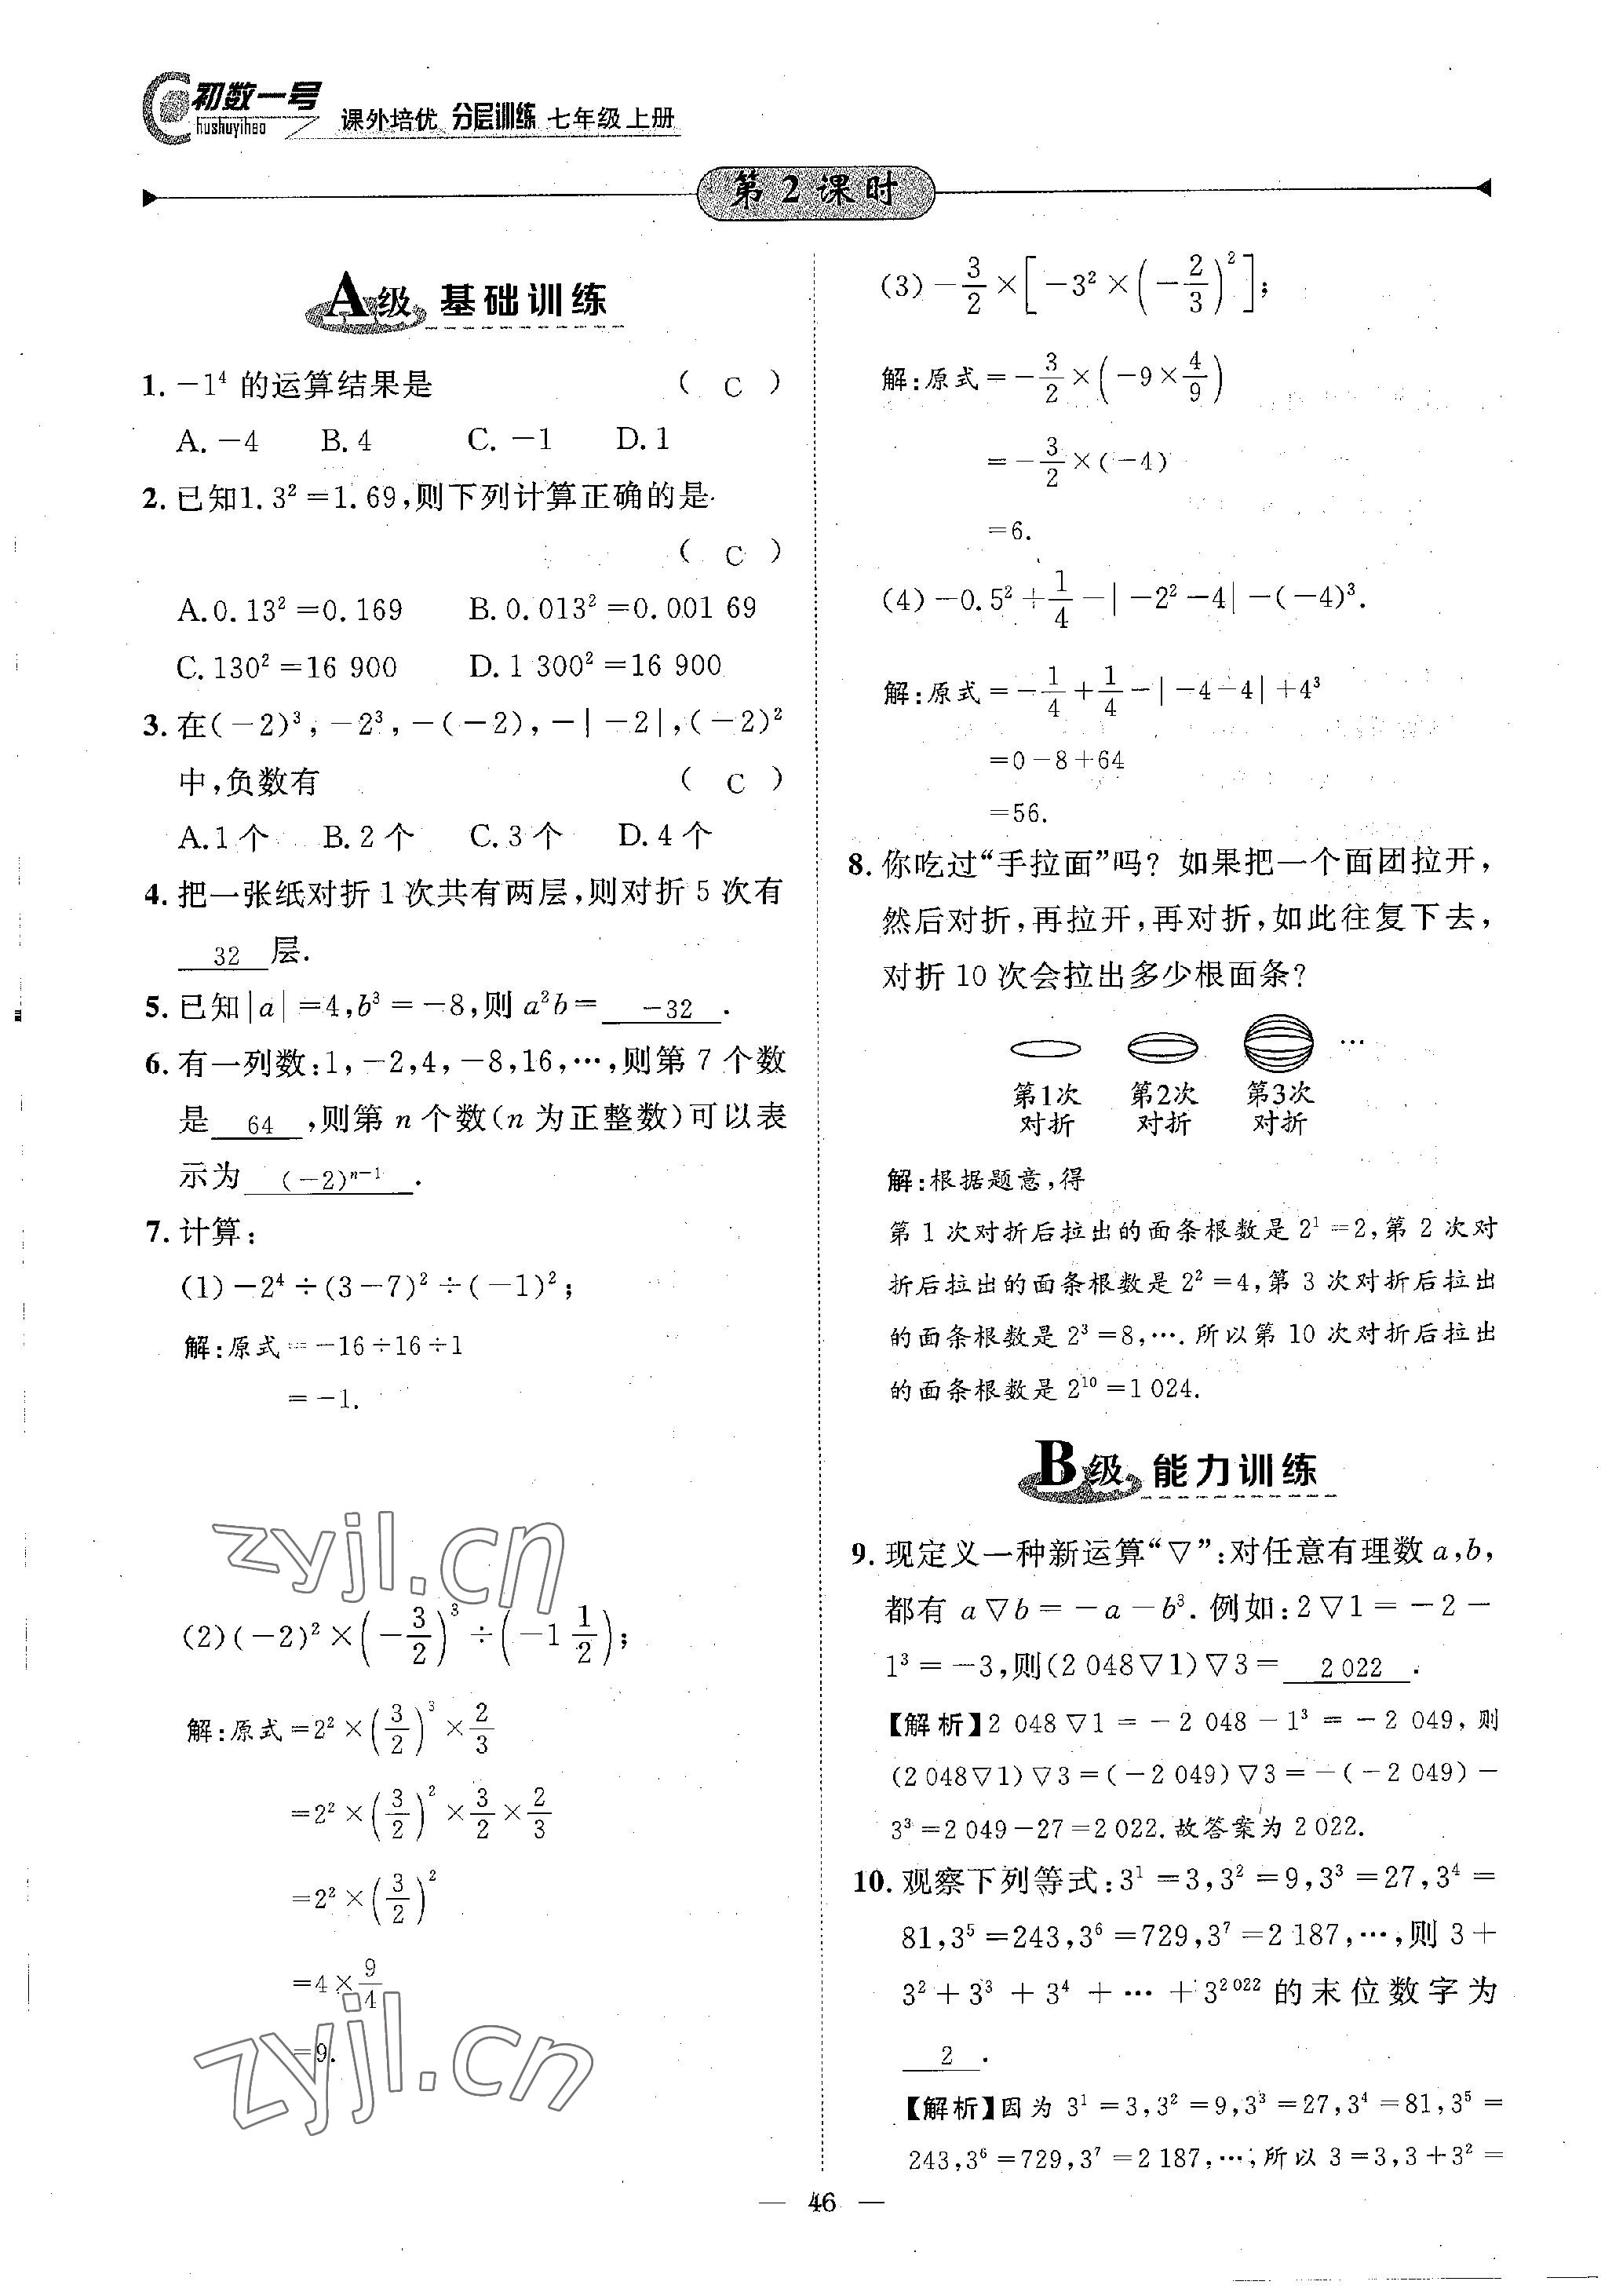 初数一号
Chushuyihao
课外培优 分层训练 七年级上册
第2课时
A级 基础训练
1. −1⁴ 的运算结果是 ( C )
A. −4 B. 4 C. −1 D. 1
2. 已知1. 3² =1. 69,则下列计算正确的是
( C )
A. 0. 13² =0. 169 B. 0. 013² =0. 001 69
C. 130² =16 900 D. 1 300² =16 900
3. 在(−2)³, −2³, −(−2), −|−2|,(−2)²
中,负数有 ( C )
A. 1个 B. 2个 C. 3个 D. 4个
4. 把一张纸对折1次共有两层,则对折5次有
32 层.
5. 已知|a|=4,b³=−8,则a²b= −32 .
6. 有一列数:1,−2,4,−8,16,…,则第7个数
是 64 ,则第n个数(n为正整数)可以表
示为 (−2)ⁿ⁻¹ .
7. 计算:
(1)−2⁴÷(3−7)²÷(−1)²;
解:原式=−16÷16÷1
=−1.
zyjl.cn
(2)(−2)²×(−3/2)³÷(−1 1/2);
解:原式=2²×(3/2)³×2/3
=2²×(3/2)²×3/2×2/3
=2²×(3/2)²
=4×9/4
=9.
zyjl.cn
(3)−3/2×[−3²×(−2/3)²];
解:原式=−3/2×(−9×4/9)
=−3/2×(−4)
=6.
(4)−0. 5²+1/4−|−2²−4|−(−4)³.
解:原式=−1/4+1/4−|−4−4|+4³
=0−8+64
=56.
8. 你吃过“手拉面”吗? 如果把一个面团拉开,
然后对折,再拉开,再对折,如此往复下去,
对折10次会拉出多少根面条?
…
第1次 第2次 第3次
对折 对折 对折
解:根据题意,得
第1次对折后拉出的面条根数是2¹=2,第2次对
折后拉出的面条根数是2²=4,第3次对折后拉出
的面条根数是2³=8,…. 所以第10次对折后拉出
的面条根数是2¹⁰=1 024.
B级 能力训练
9. 现定义一种新运算“▽”:对任意有理数a,b,
都有a▽b=−a−b³. 例如:2▽1=−2−
1³=−3,则(2 048▽1)▽3= 2 022 .
【解析】2 048▽1=−2 048−1³=−2 049,则
(2 048▽1)▽3=(−2 049)▽3=−(−2 049)−
3³=2 049−27=2 022. 故答案为2 022.
10. 观察下列等式:3¹=3,3²=9,3³=27,3⁴=
81,3⁵=243,3⁶=729,3⁷=2 187,…,则3+
3²+3³+3⁴+…+3²⁰²²的末位数字为
2 .
【解析】因为3¹=3,3²=9,3³=27,3⁴=81,3⁵=
243,3⁶=729,3⁷=2 187,…,所以3=3,3+3²=
— 46 —